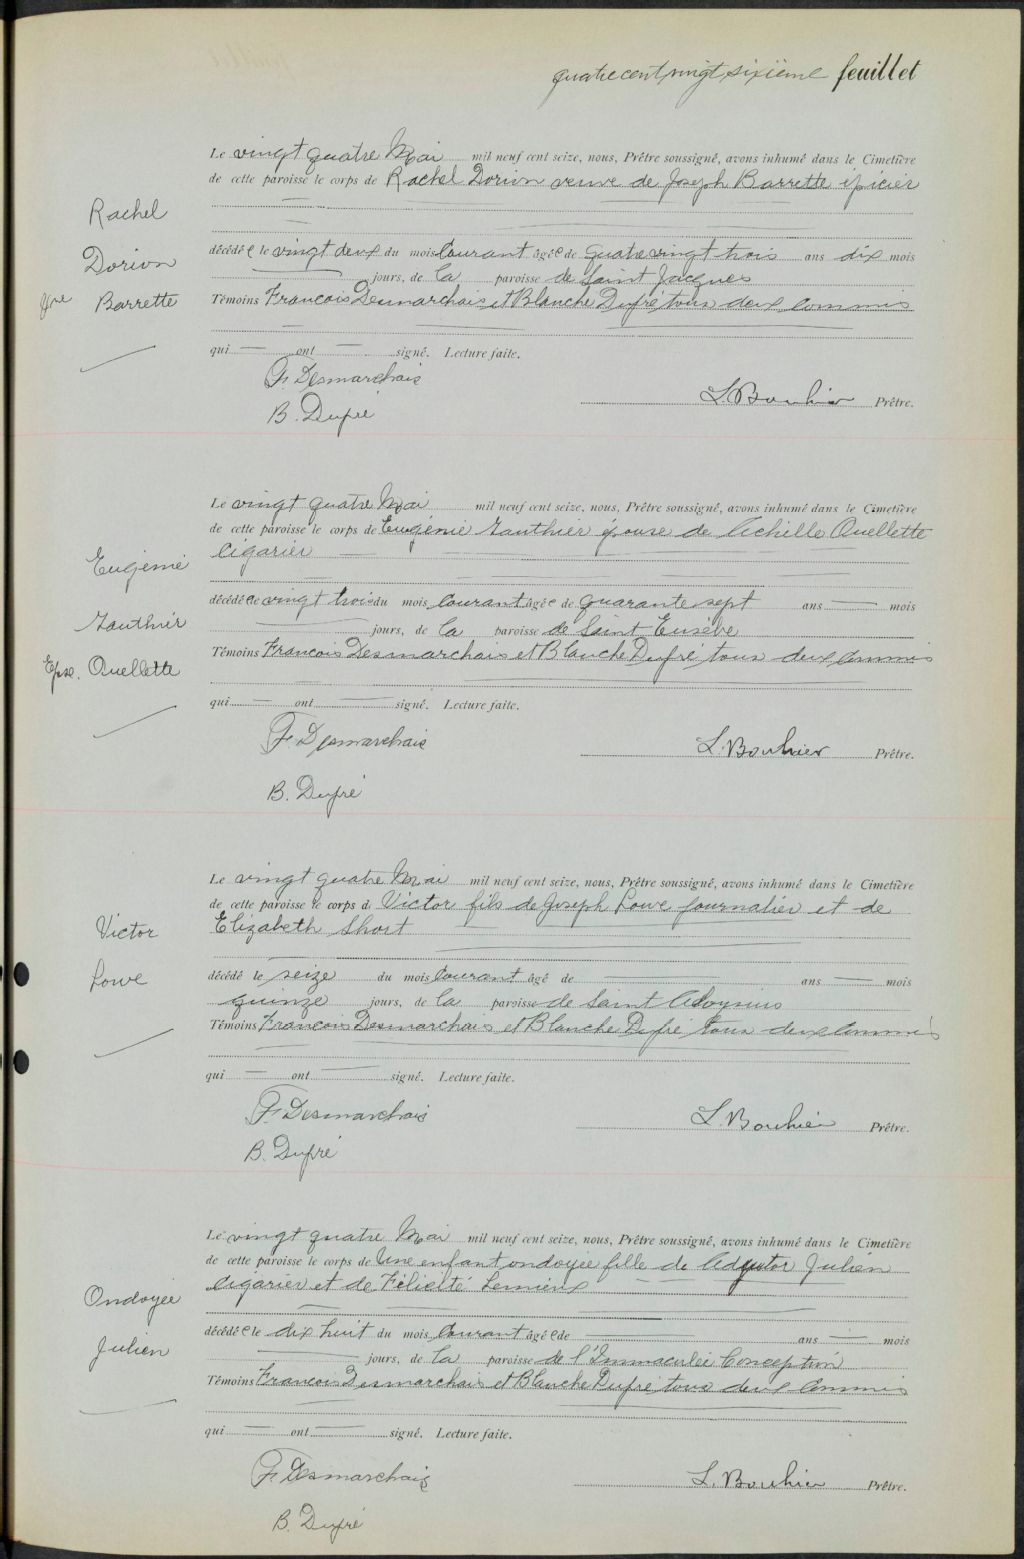 quatre cent vingt sixième feuillet
Le vingt quatre Mai mil neuf cent seize, nous, Prêtre soussigné, avons inhumé dans le Cimetière
de cette paroisse le corps de Rachel Dorion veuve de Joseph Barrette épicier
Rachel
Dorion
Vve Barrette
décédée le vingt deux du mois Courant âgée de quatre vingt trois ans dix mois
jours, de la paroisse de Saint Jacques
Témoins Francois Desmarchais et Blanche Dufré tous deux commis
qui ont signé. Lecture faite.
F. Desmarchais
B. Dufré
L. Bouhier Prêtre.
Le vingt quatre Mai mil neuf cent seize, nous, Prêtre soussigné, avons inhumé dans le Cimetière
de cette paroisse le corps de Eugénie Gauthier épouse de Achille Ouellette
Cigarier
Eugénie
Gauthier
Epse. Ouellette
décédée le vingt trois du mois Courant âgée de quarante sept ans mois
jours, de la paroisse de Saint Eusèbe
Témoins Francois Desmarchais et Blanche Dufré tous deux Commis
qui ont signé. Lecture faite.
F. Desmarchais
L. Bouhier Prêtre.
B. Dufré
Le vingt quatre Mai mil neuf cent seize, nous, Prêtre soussigné, avons inhumé dans le Cimetière
de cette paroisse le corps d Victor fils de Joseph Lowe journalier et de
Elizabeth Short
Victor
Lowe
décédé le seize du mois Courant âgé de ans mois
quinze jours, de la paroisse de Saint Aloysius
Témoins Francois Desmarchais et Blanche Dufré tous deux Commis
qui ont signé. Lecture faite.
F. Desmarchais
L. Bouhier Prêtre.
B. Dufré
Le vingt quatre Mai mil neuf cent seize, nous, Prêtre soussigné, avons inhumé dans le Cimetière
de cette paroisse le corps de Une enfant ondoyée fille de Adjutor Julien
Cigarier et de Félicité Lemieux
Ondoyée
Julien
décédée le dix huit du mois Courant âgée de ans mois
jours, de la paroisse de l'Immaculée Conception
Témoins Francois Desmarchais et Blanche Dufré tous deux Commis
qui ont signé. Lecture faite.
F. Desmarchais
L. Bouhier Prêtre.
B. Dufré